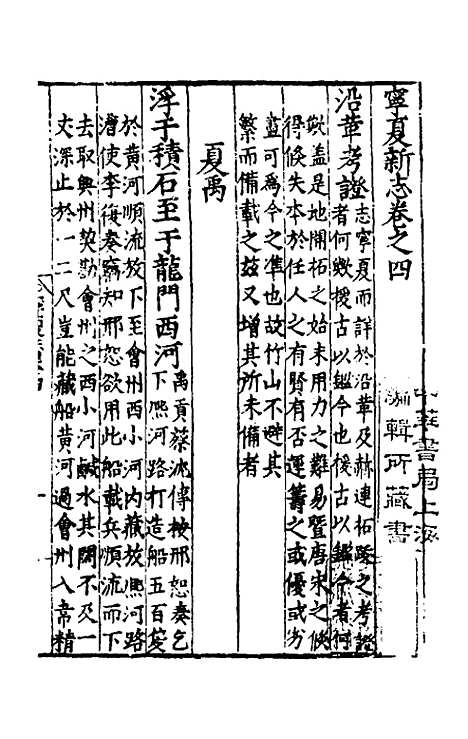 寧夏新志卷之四
沿革考證志寧夏而詳於沿革及赫連拓跋之考證
者何欤援古以鑑今也援古以鑑今者何
欤盖是地開拓之始未用力之難易暨唐宋之
得失本於任人之有賢有否運籌之或優或劣
並可爲今之準也故竹山不避其
繁而備載之兹又增其所未備者
夏禹
浮于積石至于龍門西河禹貢蔡沈傳按邢恕奏乞
下熙河路打造船五百隻
於黄河順流放下至會州西小河内藏放熙河路
漕使李復奏竊知邢恕欲用此船載兵順流而下
去取興州契勘會州之西小河鹹水其闊不及一
丈深止於一二尺豈能藏船黄河過會州入韋精
中華書局上海
編輯所藏書